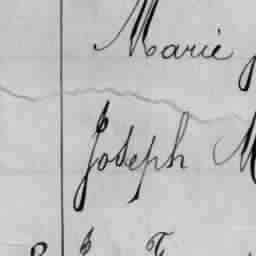 Marie
Joseph M